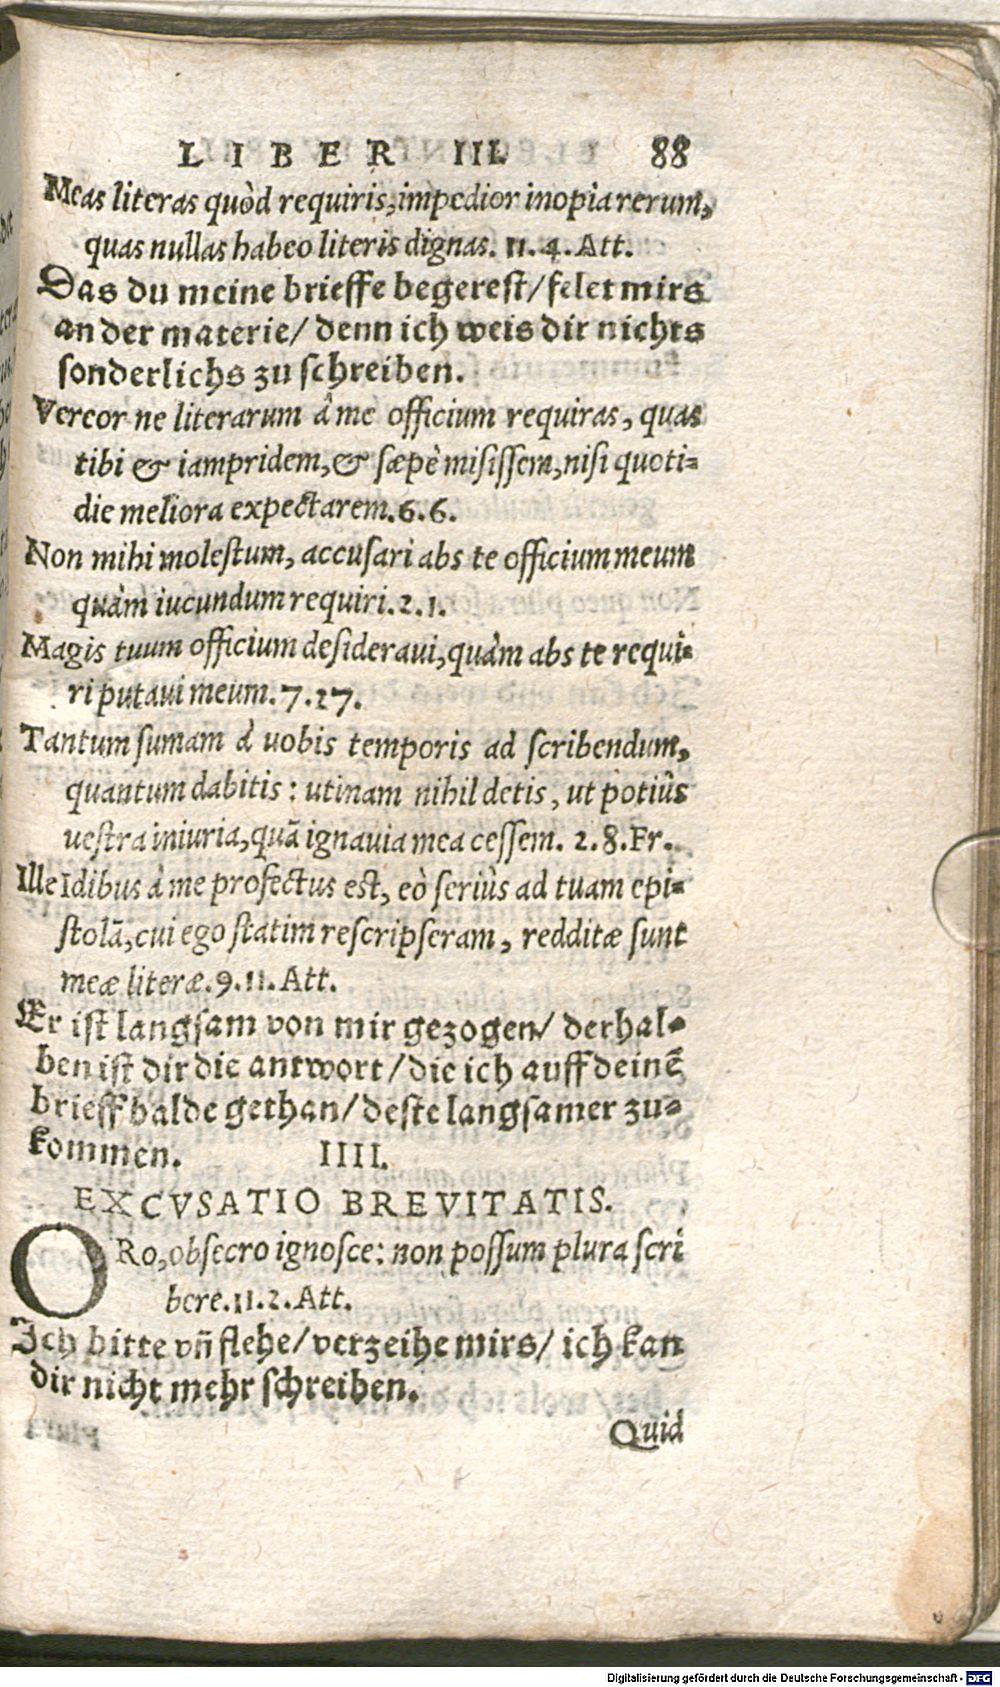 LIBER III. 88
Meas literas quòd requiris, impedior inopia rerum,
quas nullas habeo literis dignas. 11. 4. Att.
Das du meine brieffe begerest/ felet mirs
an der materie/ denn ich weis dir nichts
sonderlichs zu schreiben.
Vereor ne literarum â me officium requiras, quas
tibi & iampridem, & sæpè misissem, nisi quoti=
die meliora expectarem. 6. 6.
Non mihi molestum, accusari abs te officium meum
quàm iucundum requiri. 2. 1.
Magis tuum officium desideravi, quàm abs te requi=
ri putavi meum. 7. 27.
Tantum sumam à uobis temporis ad scribendum,
quantum dabitis: utinam nihil detis, ut potiùs
uestra iniuria, quã ignavia mea cessem. 2. 8. Fr.
Ille Idibus à me profectus est, eò seriùs ad tuam epi=
stolã, cui ego statim rescripseram, redditæ sunt
meæ literæ. 9. 11. Att.
Er ist langsam von mir gezogen/ derhal=
ben ist dir die antwort/ die ich auff deinẽ
brieff balde gethan/ deste langsamer zu=
kommen. IIII.
EXCVSATIO BREVITATIS.
ORo, obsecro ignosce: non possum plura scri
bere. 11. 2. Att.
Ich bitte vñ flehe/ verzeihe mirs/ ich kan
dir nicht mehr schreiben.
Quid
Digitalisierung gefördert durch die Deutsche Forschungsgemeinschaft - DFG